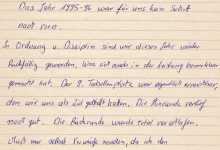 Das Jahr 1995-96 war für uns kein Schritt
nach vorn.
In Ordnung u. Disziplin sind wir dieses Jahr wieder
Rückfällig geworden, was sich auch in der Leistung bemerkbar
gemacht hat. Der 9. Tabellenplatz war eigentlich erreichbar,
den wir uns als Ziel gesetzt hatten. Die Hinrunde verlief
noch gut. Die Rückrunde wurde total verschlafen,
Muß mir selbst Vorwürfe machen, da ich den